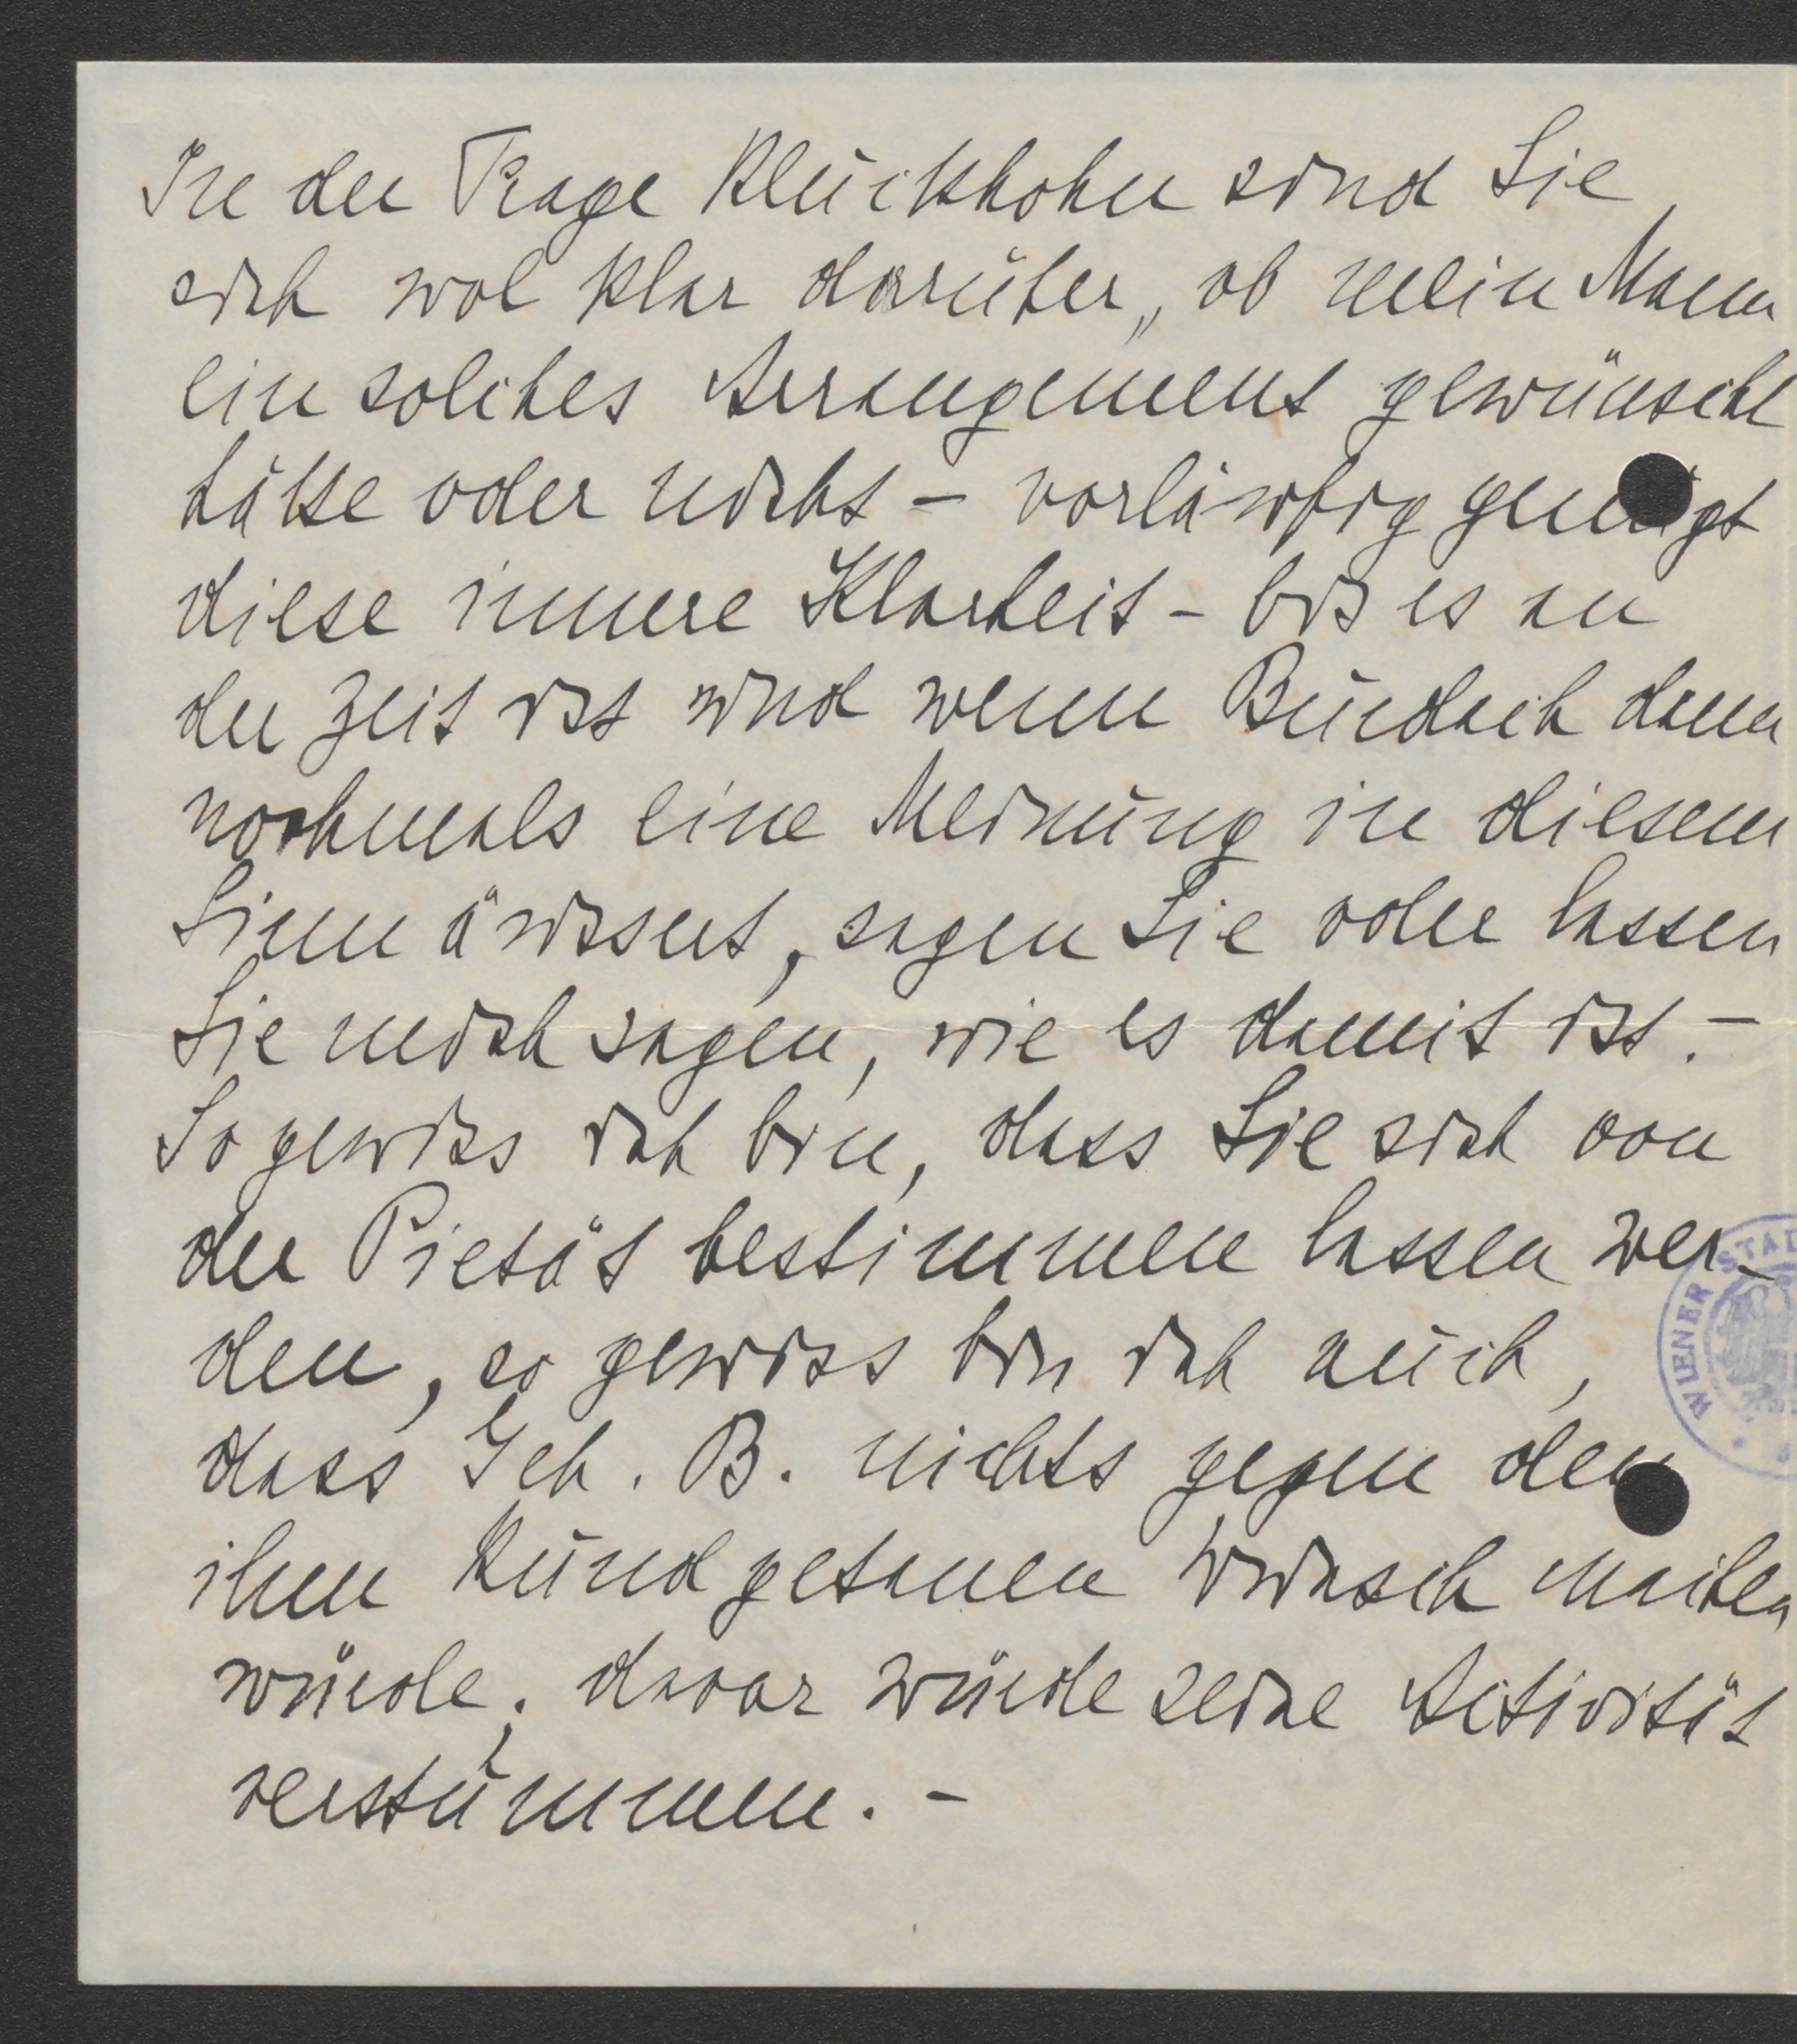 In der Frage Kluckhohn sind Sie
sich wol klar darüber, ob mein Mann
ein solches Arrangement gewünscht
hätte oder nicht – vorläufig genügt
diese innere Klarheit – bis es an
der Zeit ist und wenn Burdach dann
nochmals eine Meinung in diesem
Sinn äussert, sagen Sie oder lassen
Sie mich sagen, wie es damit ist. –
So gewiss ich bin, dass Sie sich von
der Pietät bestimmen lassen wer-
den, so gewiss bin ich auch,
dass Geh. B. nichts gegen den
ihm kundgetanen Wunsch machen
würde; davor würde seine Activität
verstummen. –
WIENER STAD